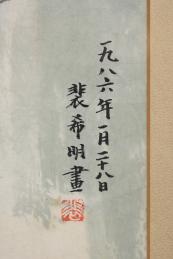 一九八六年一月二十八日
裴希明畫